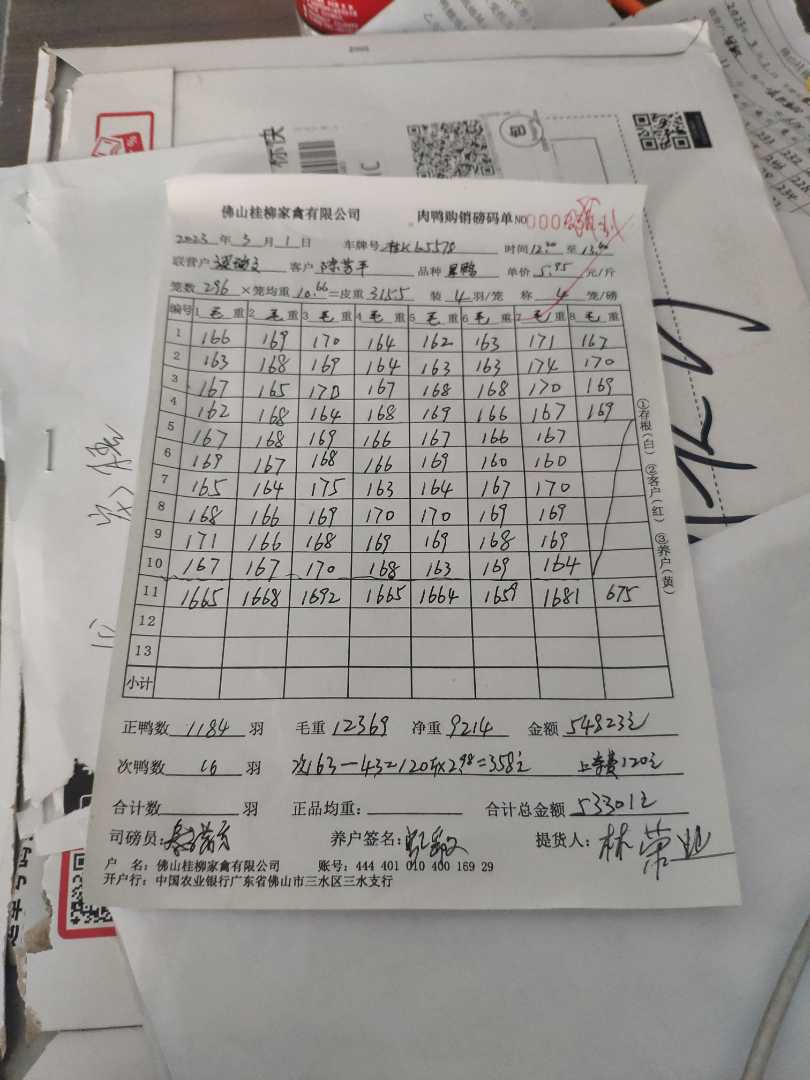 标快
佛山桂柳家禽有限公司 肉鸭购销磅码单 NO 000
2023年3月1日 车牌号 桂K65578 时间12.00至13.40
联营户 客户 陈芳平 品种 鸭 单价5.95元/斤
笼数296×笼均重10.66=皮重3155 装4羽/笼 称4笼/磅
编号 1毛重 2毛重 3毛重 4毛重 5毛重 6毛重 7毛重 8毛重
1 166 169 170 164 162 163 171 167
2 163 168 169 164 163 163 174 170
3 167 165 170 167 168 168 170 169
4 162 168 164 168 169 166 167 169
5 167 168 169 166 167 166 167
6 169 167 168 166 169 160 160
7 165 164 175 163 164 167 170
8 168 166 169 170 170 169 169
9 171 166 168 169 169 168 169
10 167 167 170 168 163 169 164
11 1665 1668 1692 1665 1664 1659 1681 675
12
13
小计
正鸭数1184羽 毛重12369 净重9214 金额54823元
次鸭数16羽 次163-43=120斤×2.98=358元 120元
合计数 羽 正品均重: 合计总金额53301元
司磅员: 养户签名: 提货人:林荣业
户 名:佛山桂柳家禽有限公司 账号:444 401 010 400 169 29
开户行:中国农业银行广东省佛山市三水区三水支行
①存根(白) ②客户(红) ③养户(黄)